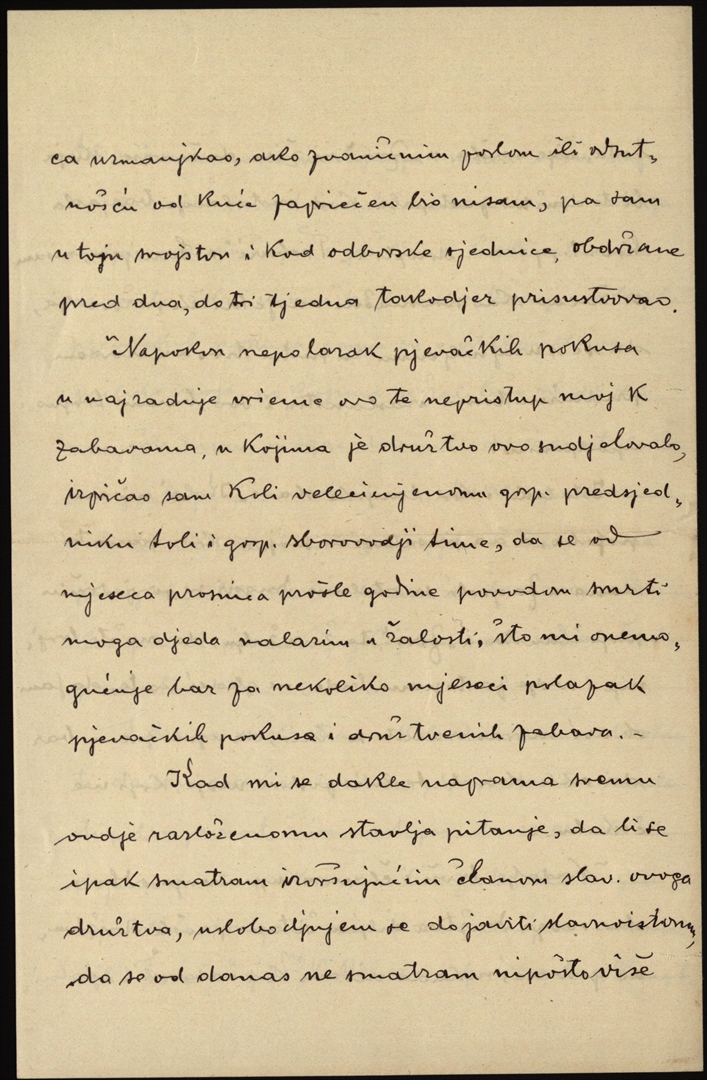 ca uzmanjkao, ako zvaničnim poslom ili odsut-
nošću od kuće zapriečen bio nisam, pa sam
u toju svojstvu i kod odborske sjednice, obdržane
pred dva, do tri tjedna takodjer prisustvovao.
Napokon nepolazak pjevačkih pokusa
u najzadnje vrieme ovo te nepristup moj k
zabavama, u kojima je družtvo ovo sudjelovalo,
izpričao sam koli velecienjenomu gosp. predsjed-
niku toli i gosp. sborovodji time, da se od
mjeseca prosinca prošle godine povodom smrti
moga djeda nalazim u žalosti, što mi onemo-
gućuje bar za nekoliko mjeseci polazak
pjevačkih pokusa i družtvenih zabava. -
Kad mi se dakle naprama svemu
ovdje razloženomu stavlja pitanje, da li se
ipak smatram izvršujućim članom slav. ovoga
družtva, uslobodjujem se dojaviti slavnoistomu,
da se od danas ne smatram nipošto više